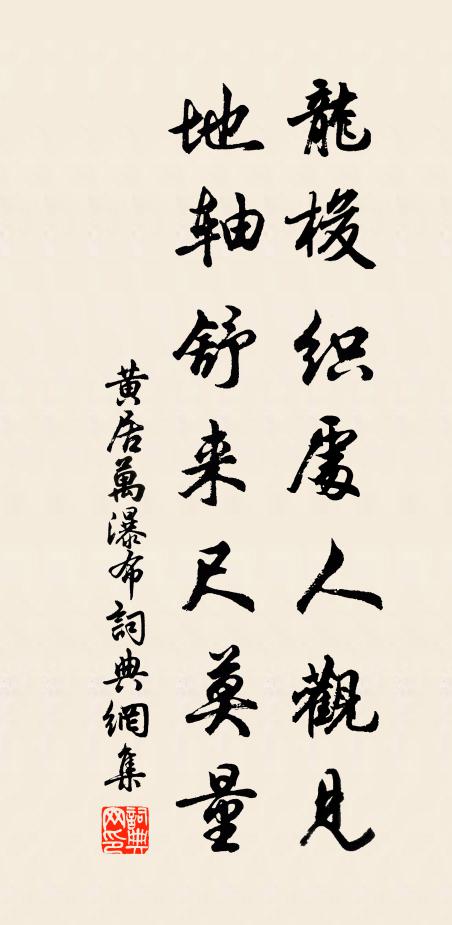 龍梭织處人觀見
地轴舒来尺莫量
黄居萬瀑布詞典網集
詞典网印